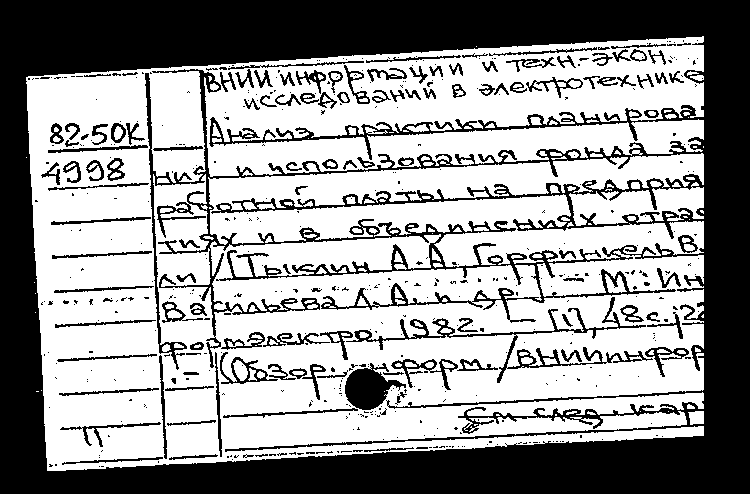 ВНИИ информации и техн.-экон.
исследований в электротехнике
82-50К Анализ практики планирова-
4998 ния и использования фонда за
работной платы на предприя
тиях и в объединениях отрас
ли / [Тыклин А.А., Горфинкель В.
Васильева Л.А. и др.]. — М.: Ин
формэлектро, 1982. — [1], 48 с.; 22
. — (Обзор. информ. / ВНИИинфор
См. след. кар
11